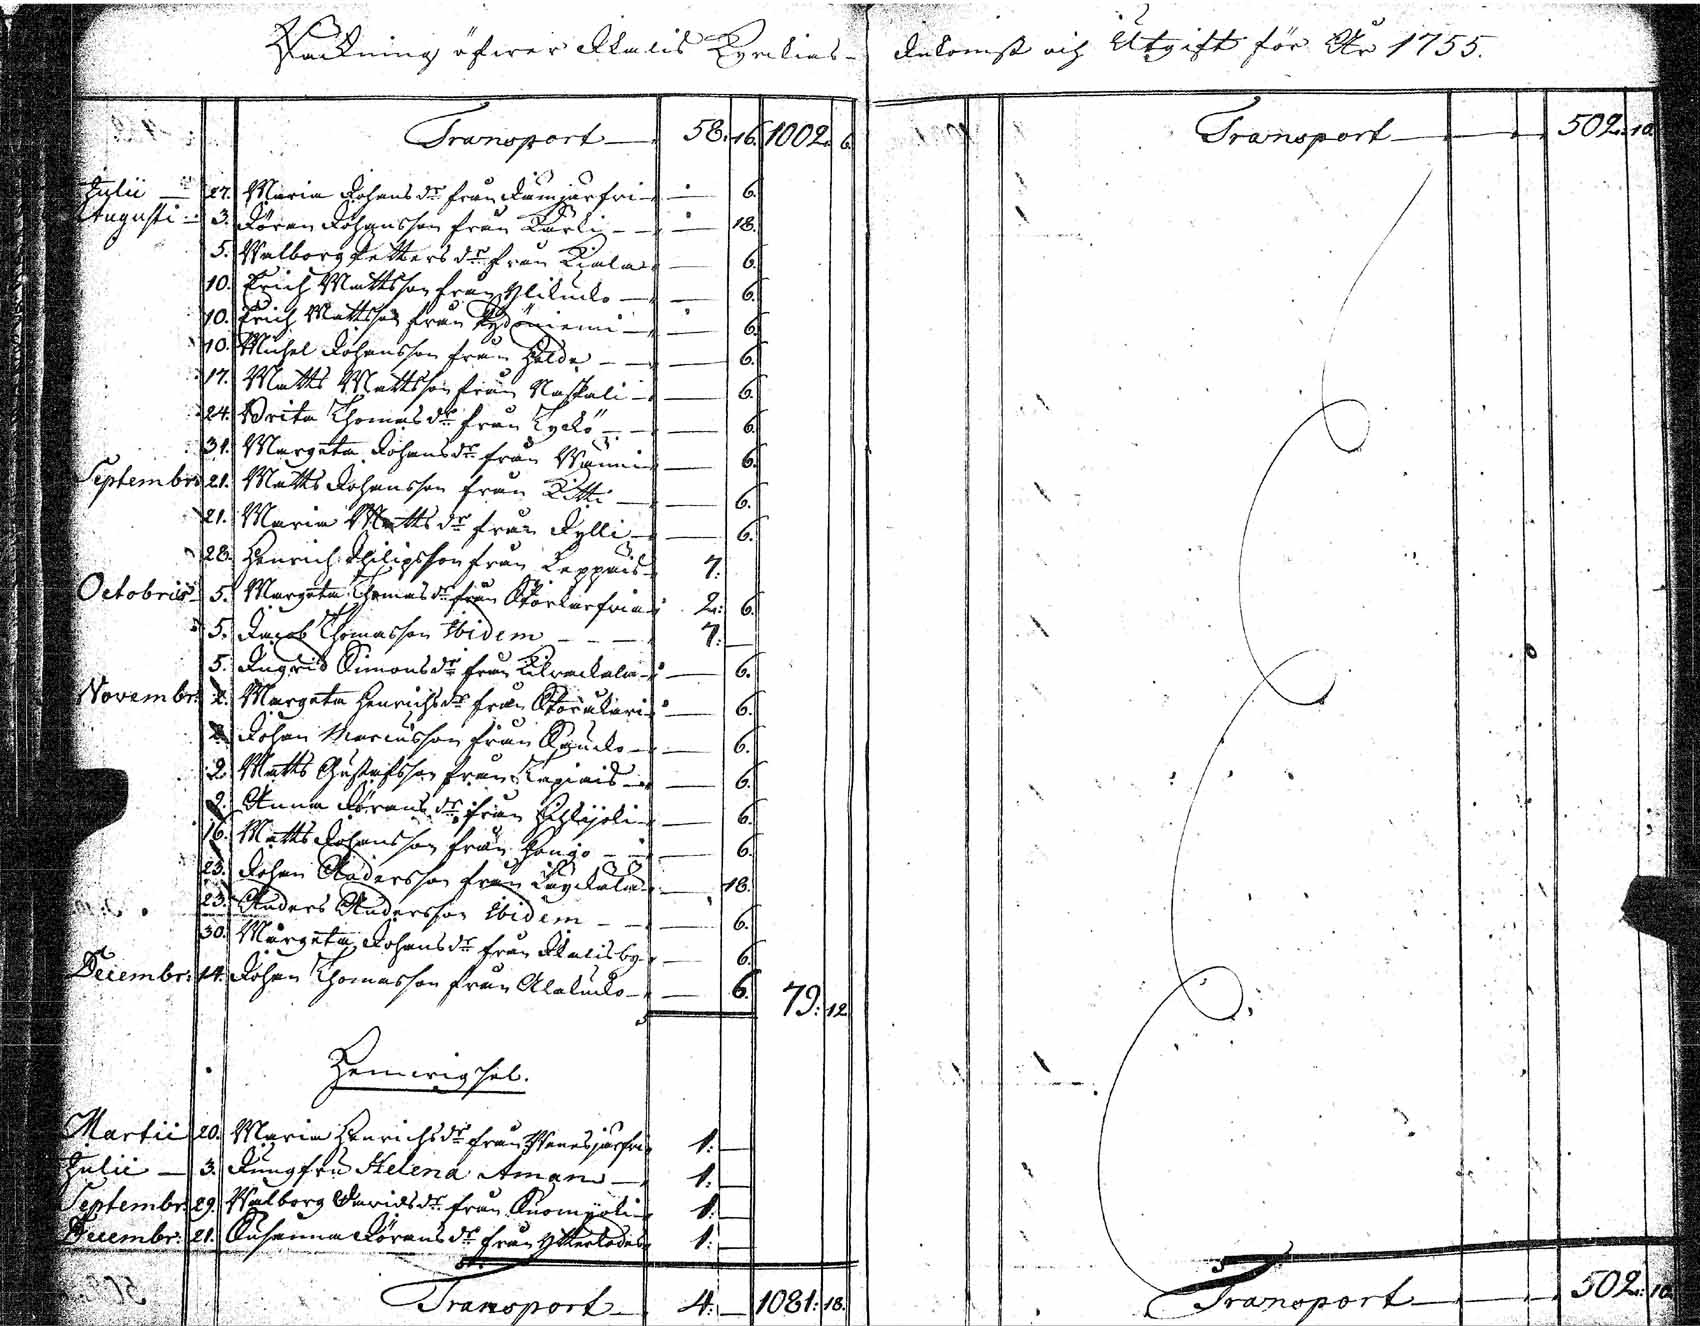 Räckning öfwer Ikalis Kyrckias Inkomst och Utgift för År 1755.
Transport — 58: 16. 1002. 6.
Julii — 27. Maria Johans dr från — 6.
Augusti — 3. Jöran Johansson från Karli — 18.
5. Walborg Petters dr från Kiala — 6.
10. Erich Mattsson från Ylikucko — 6.
10. Erich Mattsson från — 6.
10. Michel Johansson från — 6.
17. Matts Mattsson från Naskali — 6.
24. Brita Thomas dr från Kyckö — 6.
31. Margeta Johans dr från Wänni — 6.
Septembr: 21. Matts Johansson från Kitti — 6.
21. Maria Matts dr från Jylli — 6.
28. Henrich Philipsson från Leppäis 7:
Octobris 5. Margeta Thomas dr från 2: 6.
5. Jacob Thomasson Ibidem — 7: —
5. Ingrid Simons dr från Kilwackala — 6.
Novembr: 2. Margeta Henrichs dr från — 6.
2. Johan Marcusson från — 6.
9. Matts Gustafsson från — 6.
9. Anna Jörans dr från — 6.
16. Matts Johansson från — 6.
23. Johan Andersson från — 18.
23. Anders Andersson Ibidem — 6.
30. Margeta Johans dr från Ikalisby — 6.
Decembr: 14. Johan Thomasson från Alakucko — 6. 79: 12.
Hemwigsel.
Martii 20. Maria Henrichs dr från 1: —
Julii — 3. Jungfru Helena Aman — 1: —
Septembr: 29. Walborg Davids dr från 1: —
Decembr: 21. Susanna Jörans dr från 1: —
Transport — 4: — 1081: 18.
Transport — 502: 10.
Transport — 502: 10.